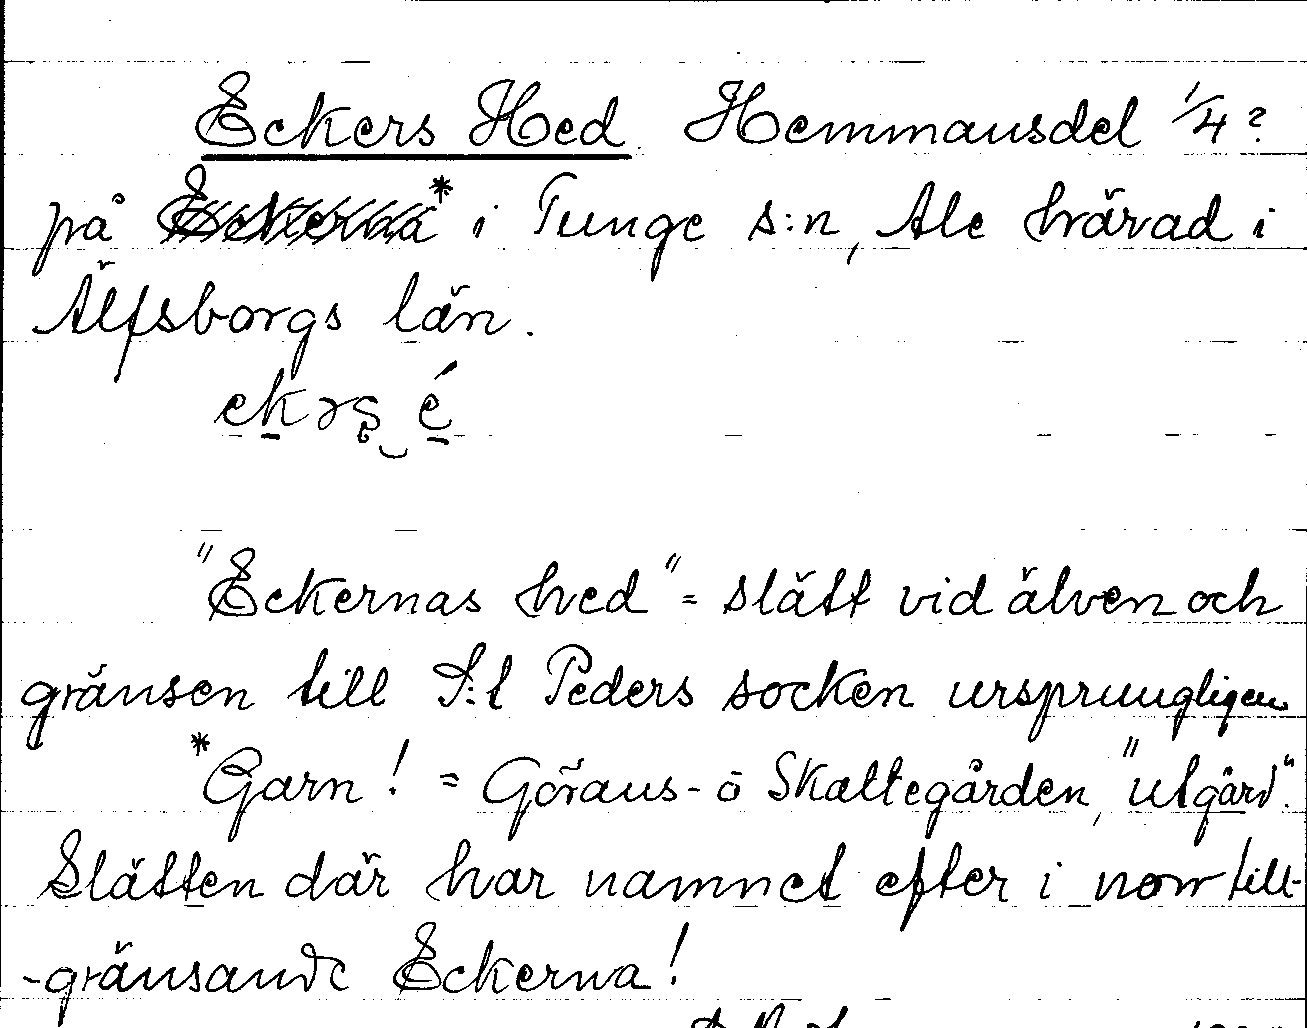 Eckers Hed. Hemmansdel 1/4?
på Eckerna* i Tunge s:n, Ale härad i
Älfsborgs län.
ekərs‿é
"Eckernas hed" = slätt vid älven och
gränsen till S:t Peders socken ursprungligen
*Garn! = Görans- o Skattegården, "utgård".
Slätten där har namnet efter i norr till-
-gränsande Eckerna!